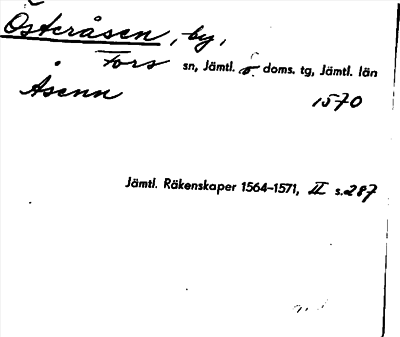 Österåsen, by,
Fors sn, Jämtl. ö. doms. tg, Jämtl. län
Åsenn 1570
Jämtl. Räkenskaper 1564-1571, II s.287